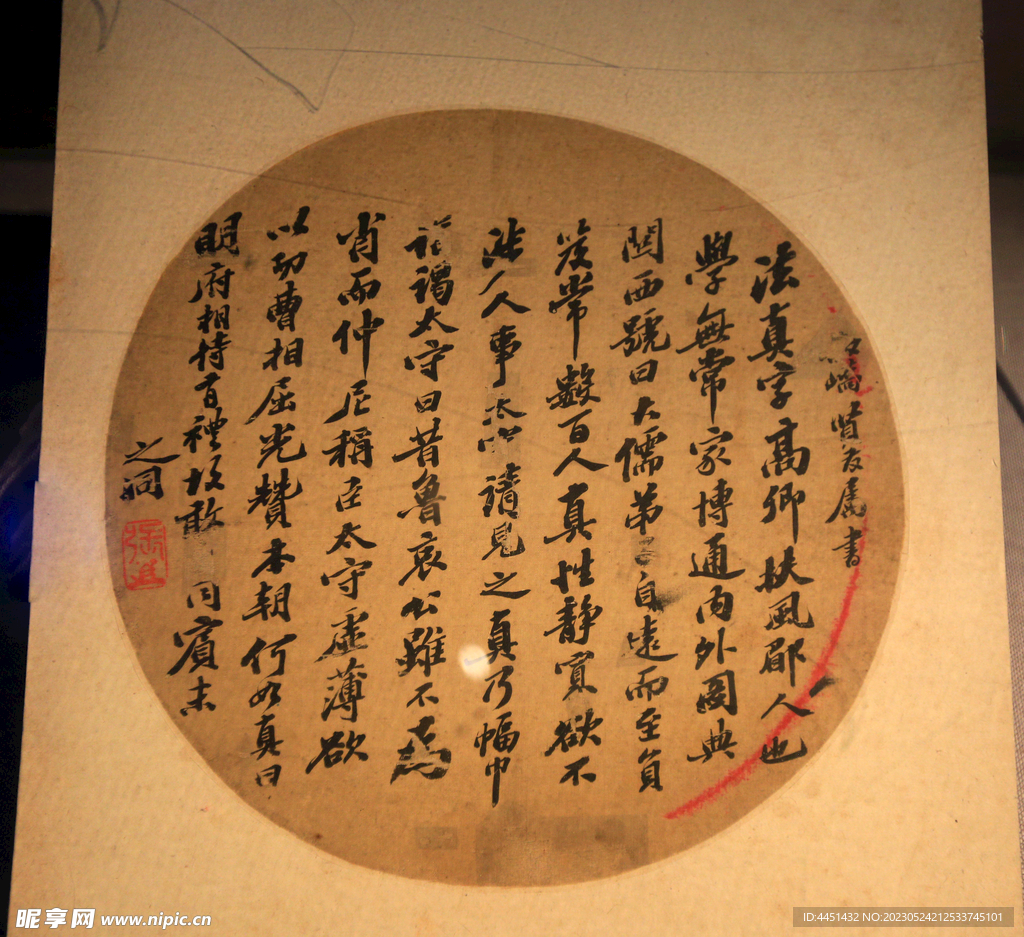 賢友屬書
法真字高卿扶風郿人也
學無常家博通内外圖典
關西號曰大儒弟子自遠而至負
笈常數百人真性靜寡欲不
涉人人事太守請見之真乃幅巾
詣謁太守曰昔魯哀公雖不為
肖而仲尼稱臣太守虛薄欲
以功曹相屈光贊本朝何如真曰
明府相待有禮故敢同賓末
之洞
昵享网 www.nipic.cn
ID:4451432 NO:20230524212533745101